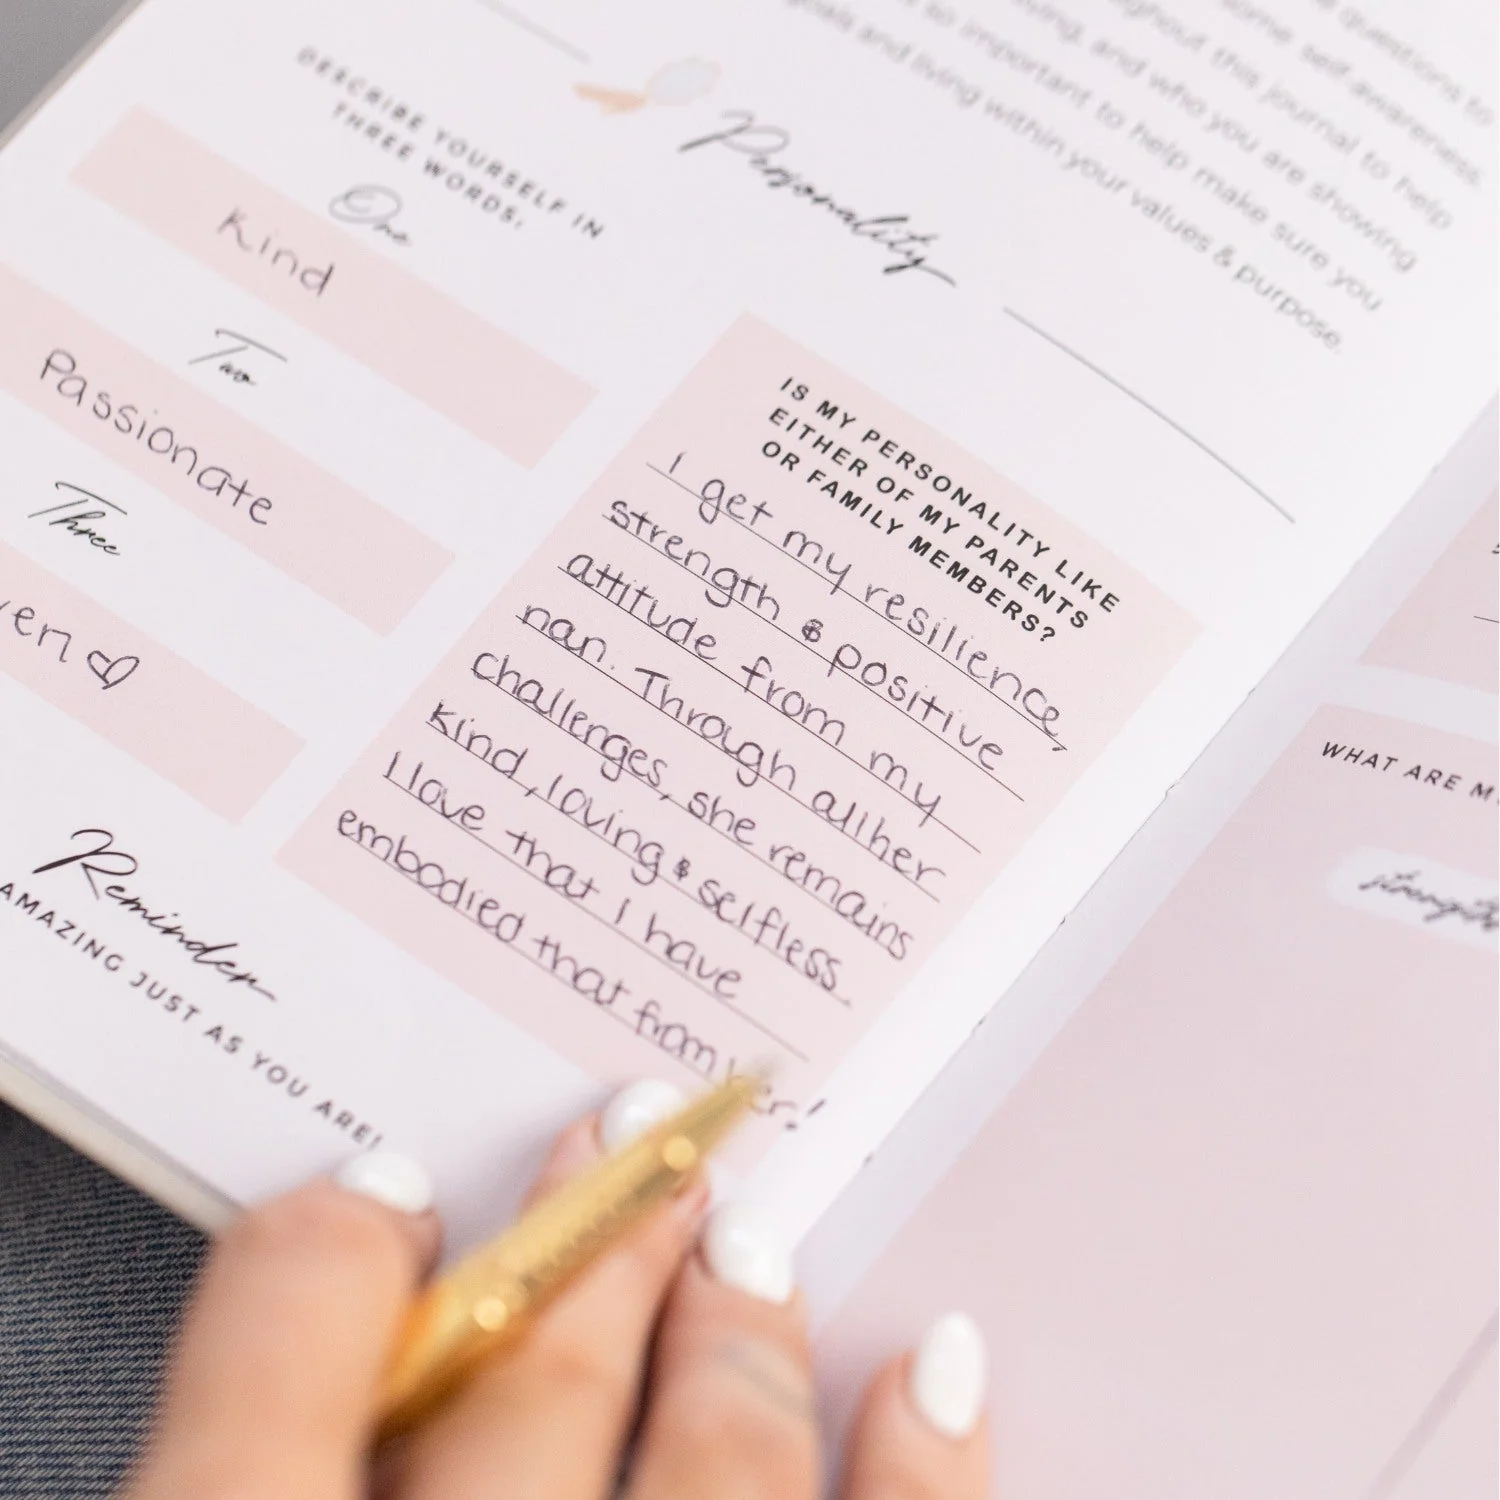 questions to
some self-awareness.
this journal to help
and who you are showing
so important to help make sure you
goals and living within your values & purpose.
Personality
DESCRIBE YOURSELF IN
THREE WORDS:
One
Kind
Two
Passionate
Three
Reminder
AMAZING JUST AS YOU ARE!
IS MY PERSONALITY LIKE
EITHER OF MY PARENTS
OR FAMILY MEMBERS?
I get my resilience,
strength & positive
attitude from my
nan. Through all her
challenges, she remains
kind, loving & selfless.
I love that I have
embodied that from her!
WHAT ARE